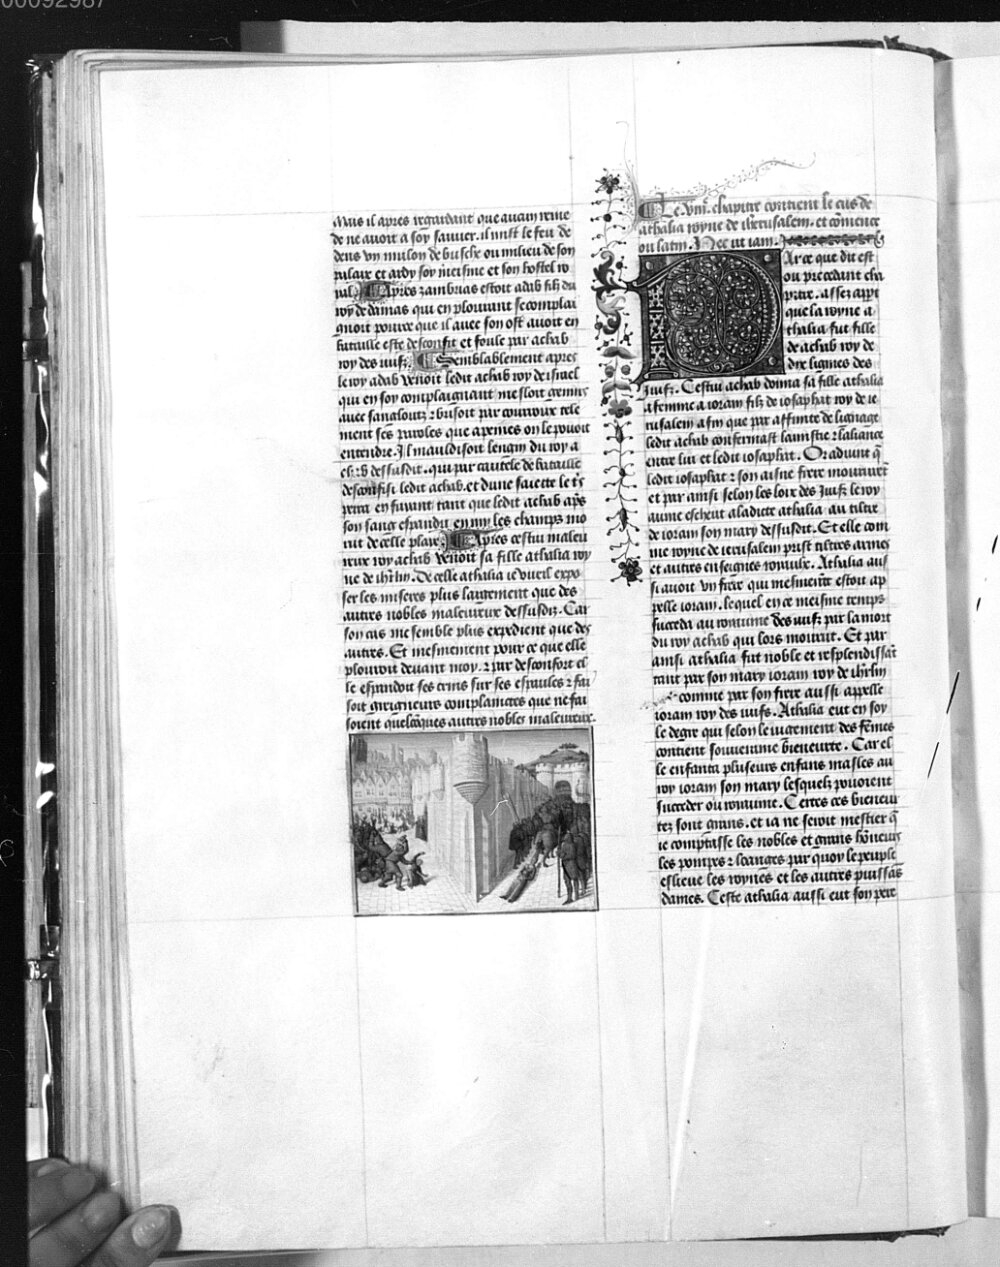 00092987
Mais il apres regardant que aucun reme
de ne auoit a soy sauuer. il mist le feu de
dens vn mulon de busche ou milieu de son
palaix et ardy soy meisme et son hostel ro
ial. Apres zambrias estoit adab filz du
roy de damas qui en plourant se complai
gnoit pource que il auec son ost auoit en
bataille este desconfit et foule par achab
roy des iuifz. Semblablement apres
le roy adab venoit ledit achab roy de israel
qui en soy complaignant mesloit gemis
auec sangloutz ⁊ busoit par courroux tele
ment ses paroles que a peines on le pouoit
entendre. Il mauldisoit lengin du roy a
dessusdit. qui par cautele de bataille
desconfist ledit achab. et dune saiette le
en fuyant tant que ledit achab aps
son sang espandu enmy les champs mo
rut de celle plaie. Apres cestui maleu
reux roy achab venoit sa fille athalia roy
ne de ihrlm. De celle athalia ie vueil expo
ser les miseres plus largement que des
autres nobles maleureux dessusdiz. Car
son cas me semble plus expedient que des
autres. Et mesmement pour ce que elle
plouroit deuant moy. ⁊ par desconfort el
le espandoit ses crins sur ses espaules ⁊ fai
soit greigneurs complaintes que ne fai
soient quelcõques autres nobles maleureux.
Le .viiie. chapitre contient le cas de
athalia royne de iherusalem. et cõmence
ou latin. Nec ut iam.
Par ce que dit est
ou precedant cha
pitre. assez appt
que la royne a
thalia fut fille
de achab roy de
dix lignees des
Juifz. Cestui achab donna sa fille athalia
a femme a ioram filz de iosaphat roy de ie
rusalem afin que par affinite de lignage
ledit achab confermast lamistie ⁊ laliance
entre lui et ledit iosaphat. Or aduint q̃
ledit iosaphat ⁊ son aisne frere moururẽt
et par ainsi selon les loix des Juifz le roy
aume escheut a ladicte athalia au tiltre
de ioram son mary dessusdit. Et elle com
me royne de ierusalem prist tiltres armes
et autres enseignes royaulx. Athalia aus
si auoit vn frere qui mesmemẽt estoit ap
pelle ioram. lequel en ce meisme temps
succeda au royaume des iuifz par la mort
du roy achab qui lors mourut. Et par
ainsi athalia fut noble et resplendissãt
tant par son mary ioram roy de ihrlm
comme par son frere aussi appelle
ioram roy des iuifs. Athalia eut en soy
le degre qui selon le iugement des fẽmes
contient souueraine bieneurte. Car el
le enfanta plusieurs enfans masles au
roy ioram son mary lesquelz pouoient
succeder ou royaume. Certes ces bieneur
tez sont grans. et ia ne seroit mestier q̃
ie comptasse les nobles et grans hõneurs
les pompes ⁊ loenges par quoy le peuple
eslieue les roynes et les autres puissãs
dames. Ceste athalia aussi eut son pere